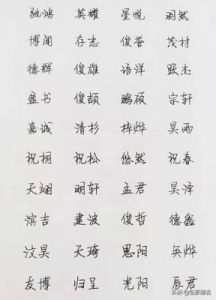 驰鸿 英耀 星悦 羽然
博闻 存志 俊誉 茂材
德辉 俊雄 语洋 跃杰
孟书 俊颉 鹏硕 宗轩
嘉诚 清杉 梓烨 昊雨
祝桐 祝松 悠然 祝春
天翊 明轩 孟君 昊泽
滨吉 建波 俊哲 德鑫
汶昊 天琦 思阳 奂烨
友博 归呈 光阳 辰君